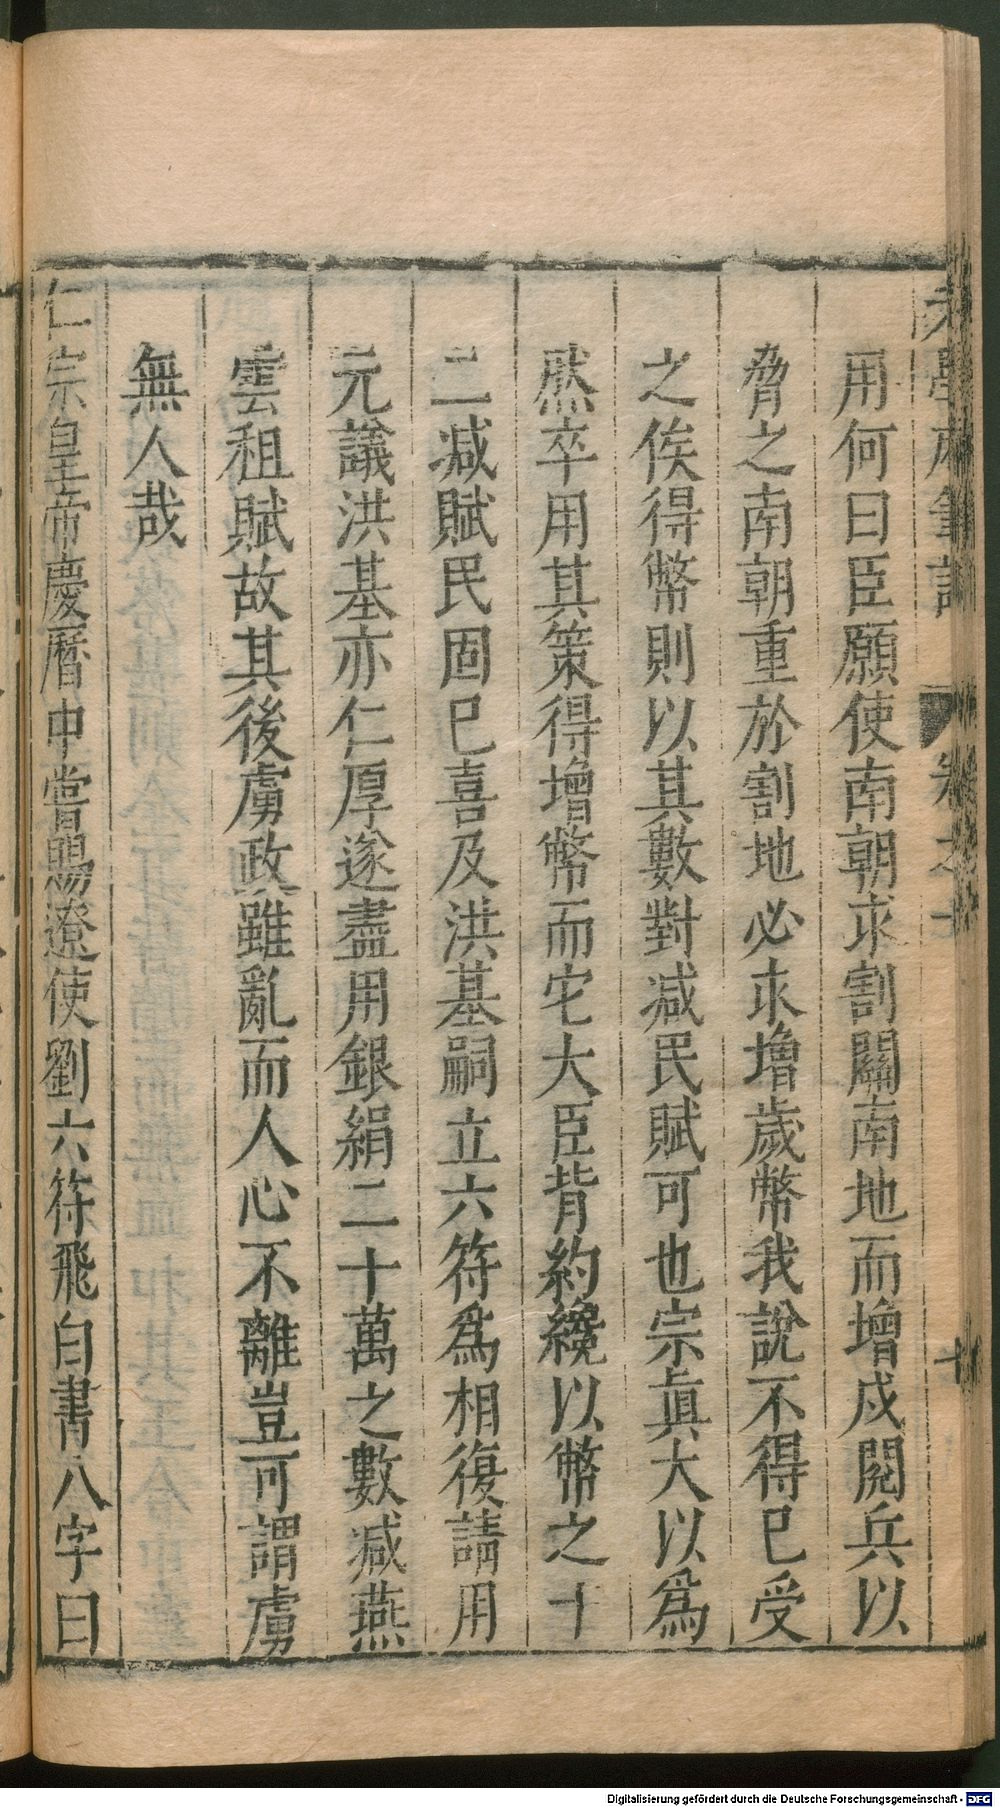 用何曰臣願使南朝求割關南地而增戍閱兵以
脅之南朝重於割地必求增歲幣我說不得已受
之俟得幣則以其數對减民賦可也宗眞大以爲
然卒用其策得增幣而宅大臣背約纔以幣之十
二减賦民固已喜及洪基嗣立六符爲相復請用
元議洪基亦仁厚遂盡用銀絹二十萬之數减燕
雲租賦故其後虜政雖亂而人心不離豈可謂虜
無人哉
仁宗皇帝慶曆中嘗賜遼使劉六符飛白書八字曰
Digitalisierung gefördert durch die Deutsche Forschungsgemeinschaft - DFG